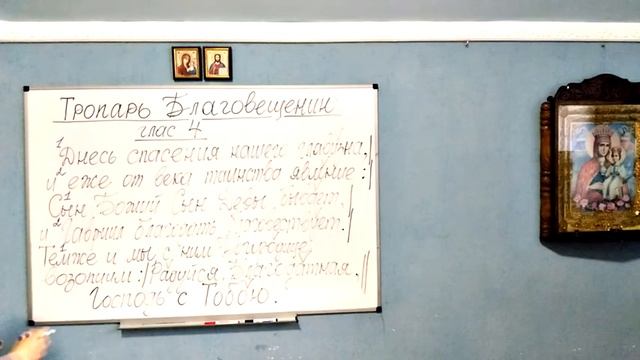 Тропарь Благовещения
глас 4
1 Днесь спасения нашего главизна, /
2 и еже от века таинства явление: /
1 Сын Божий Сын Девы бывает,
2 и Гавриил благодать благовествует. /
1 Темже и мы с ним
возопиим: / Радуйся, Благодатная. //
Господь с Тобою.